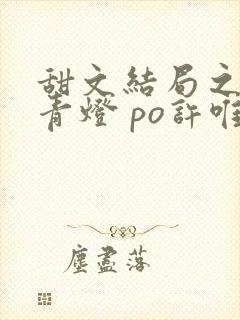 甜文結局之
青燈 po許唯
塵盡落